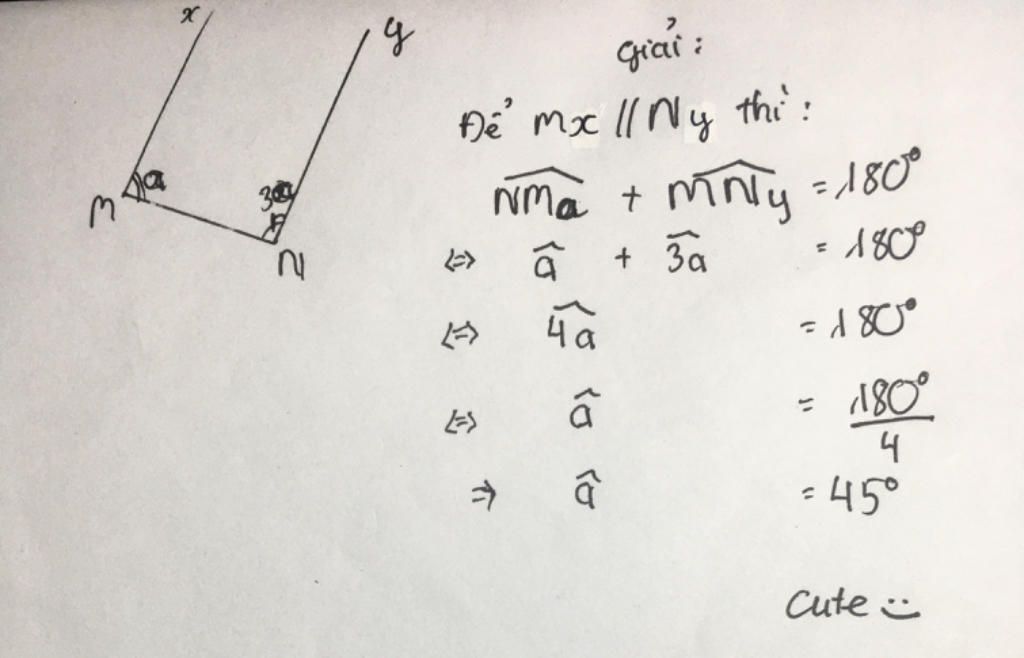 x
y
a
3a
M
N
giải:
Để Mx // Ny thì:
\widehat{NMa} + \widehat{MNy} = 180°
<=> \widehat{a} + \widehat{3a} = 180°
<=> \widehat{4a} = 180°
<=> \widehat{a} = \frac{180°}{4}
=> \widehat{a} = 45°
Cute :)